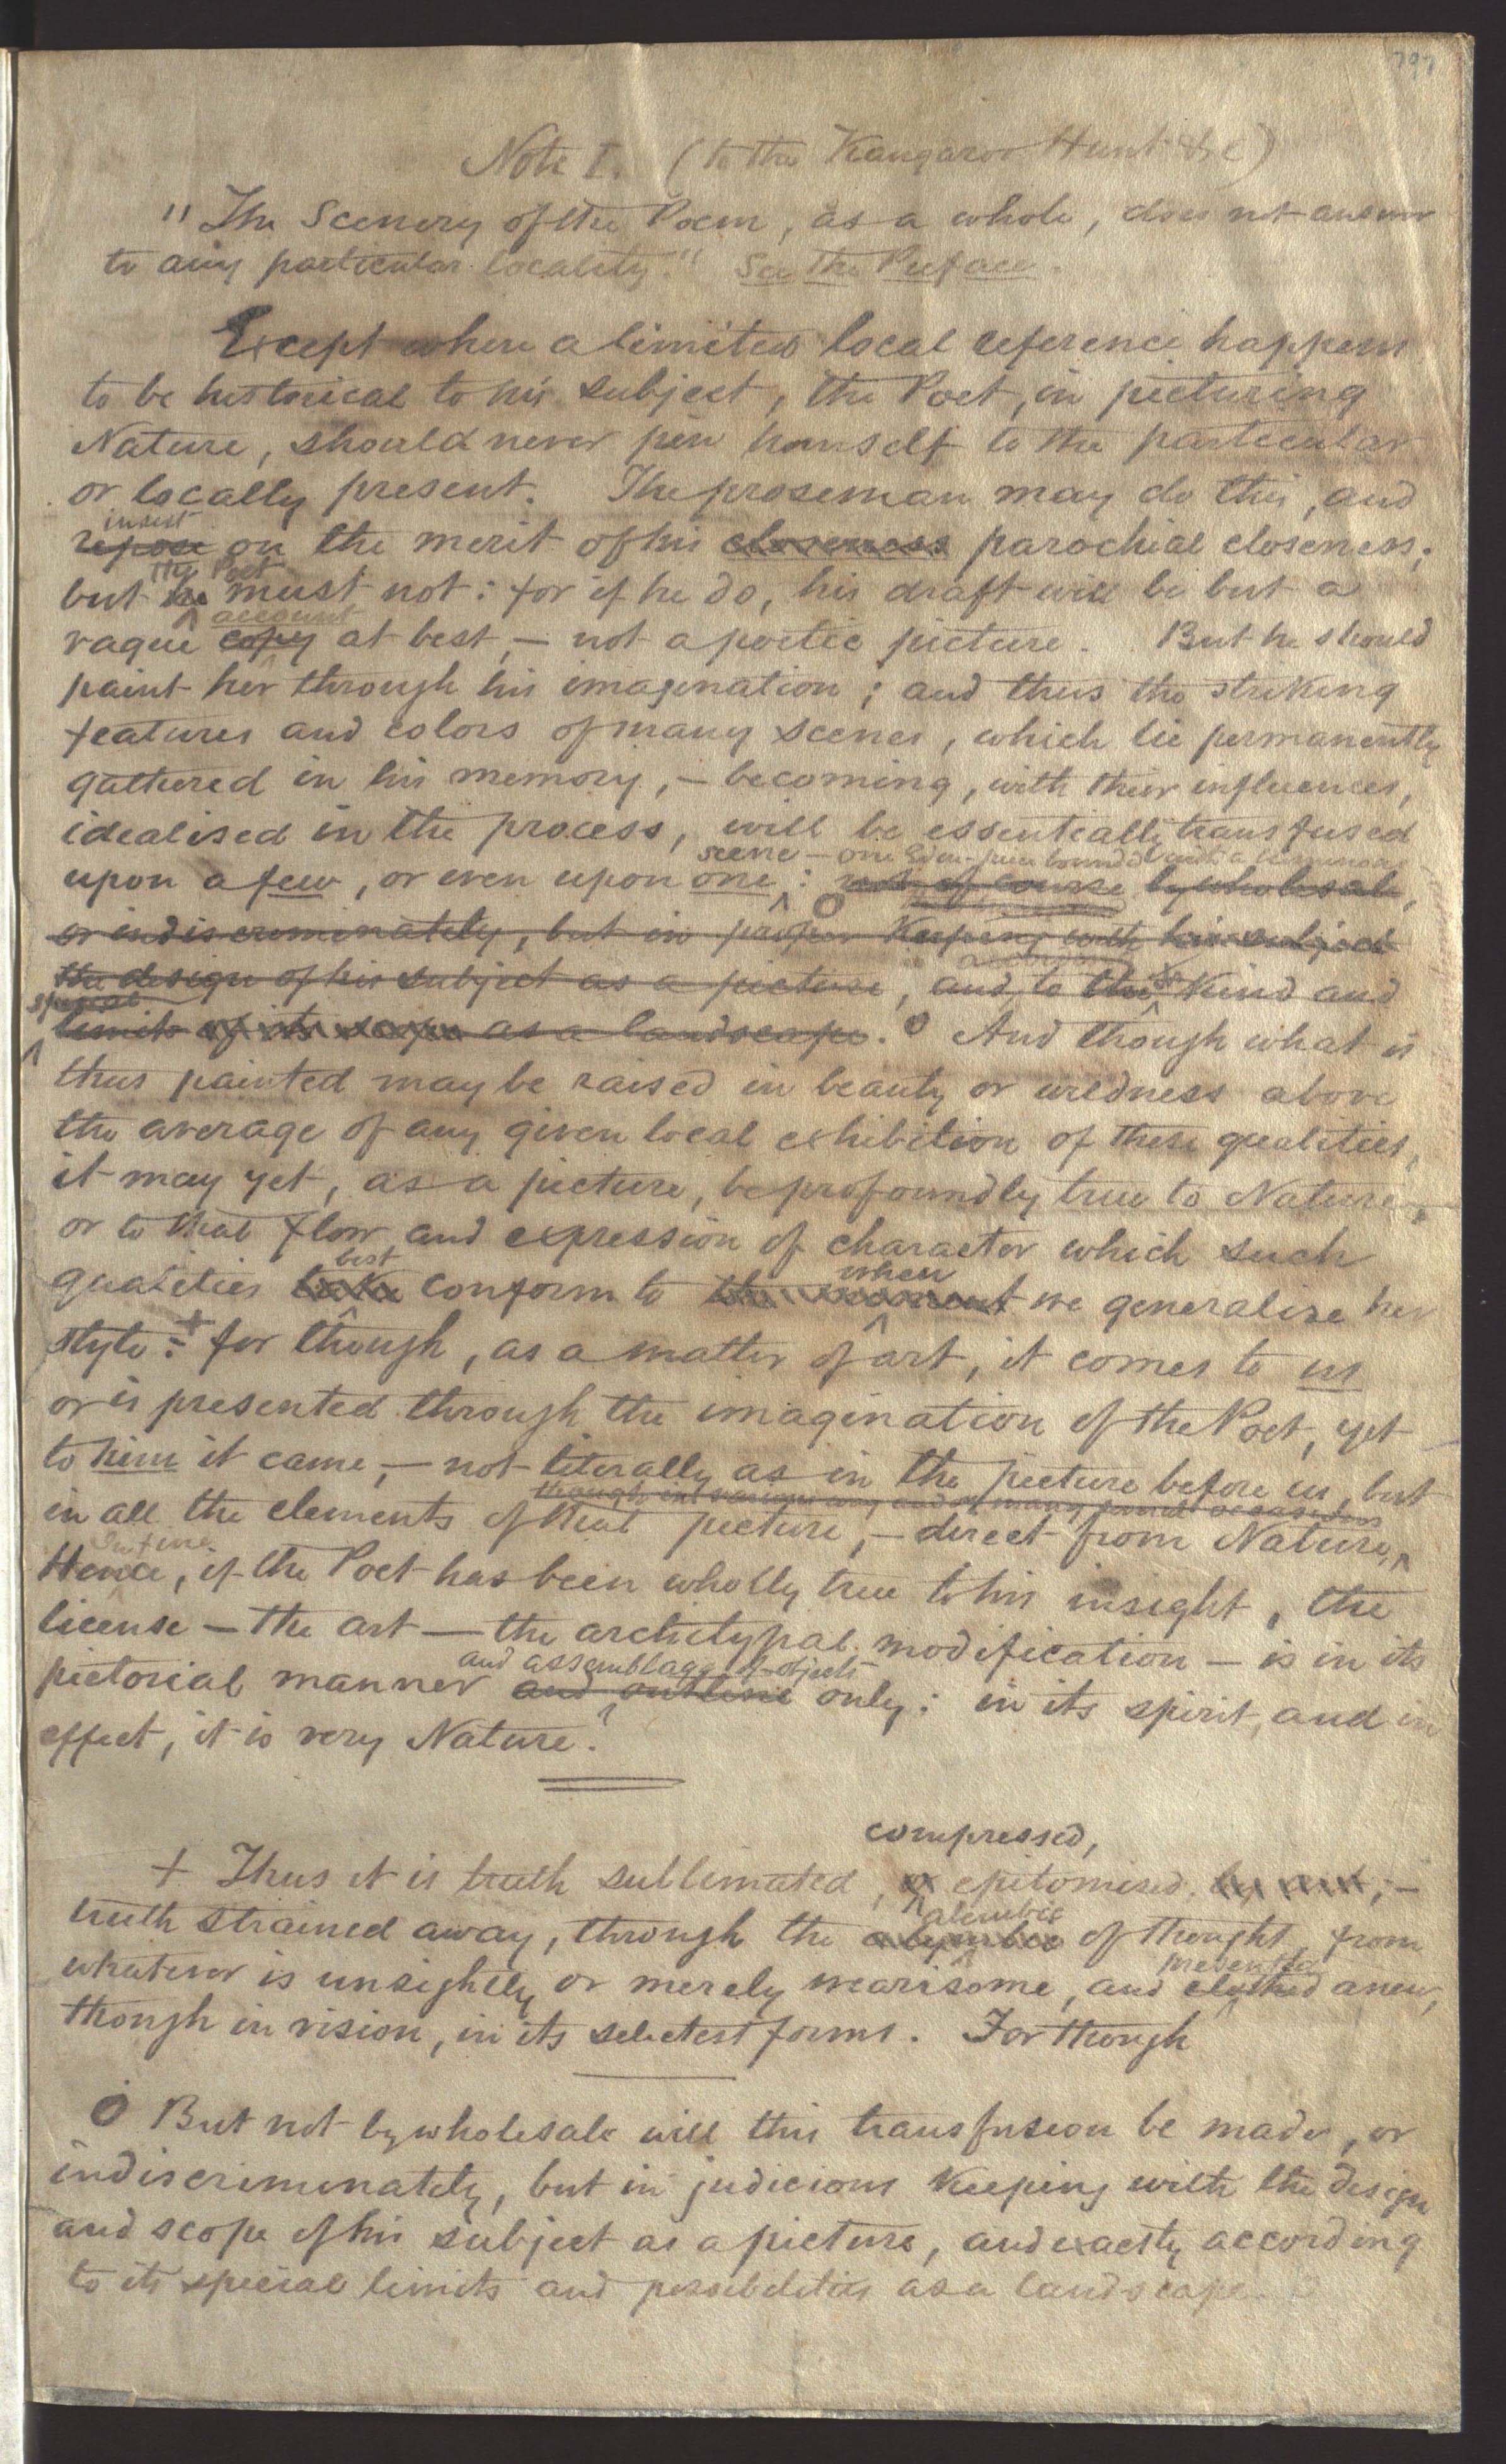 797
Note I. (to the Kangaroo Hunt &c)
"The Scenery of the Poem, as a whole, does not answer
to any particular locality." See the Preface.
Except where a limited local reference happens
to be historical to his subject, the Poet, in picturing
Nature, should never pin himself to the particular
or locally present. The proseman may do this, and
insist
repose on the merit of his closeness parochial closeness;
The Poet
but he must not: for if he do, his draft will be but a
account
vague copy at best, — not a poetic picture. But he should
paint her through his imagination; and thus the striking
features and colors of many scenes, which lie permanently
gathered in his memory, — becoming, with their influences,
idealised in the process, will be essentially transfused
scene — one bounded with a
upon a few, or even upon one: not of course by wholesale,
or indiscriminately, but in proper keeping with his subject
the design of his subject as a picture, and to the kind and
special
limits of its scope as a landscape. O And though what is
thus painted may be raised in beauty or wildness above
the average of any given local exhibition of these qualities,
it may yet, as a picture, be profoundly true to Nature,
or to that flow and expression of character which such
best when
qualities conform to the moment we generalise her
style: + for though, as a matter of art, it comes to us
or is presented through the imagination of the Poet, yet
to him it came, — not literally as in the picture before us, but
though in various ways and on many occasions
in all the elements of that picture, — direct from Nature,
In fine
Hence, if the Poet has been wholly true to his insight, the
license — the art — the archetypal modification — is in its
and assemblage of objects
pictorial manner and outline only: in its spirit, and in
effect, it is very Nature.
compressed,
+ Thus it is truth sublimated, or epitomised, by art; —
alembic
truth strained away, through the alymbic of thought, from
presented
whatever is unsightly or merely wearisome, and clothed anew,
though in vision, in its selectest forms. For though
O But not by wholesale will this transfusion be made, or
indiscriminately, but in judicious keeping with the design
and scope of his subject as a picture, and exactly according
to its special limits and possibilities as a landscape. O